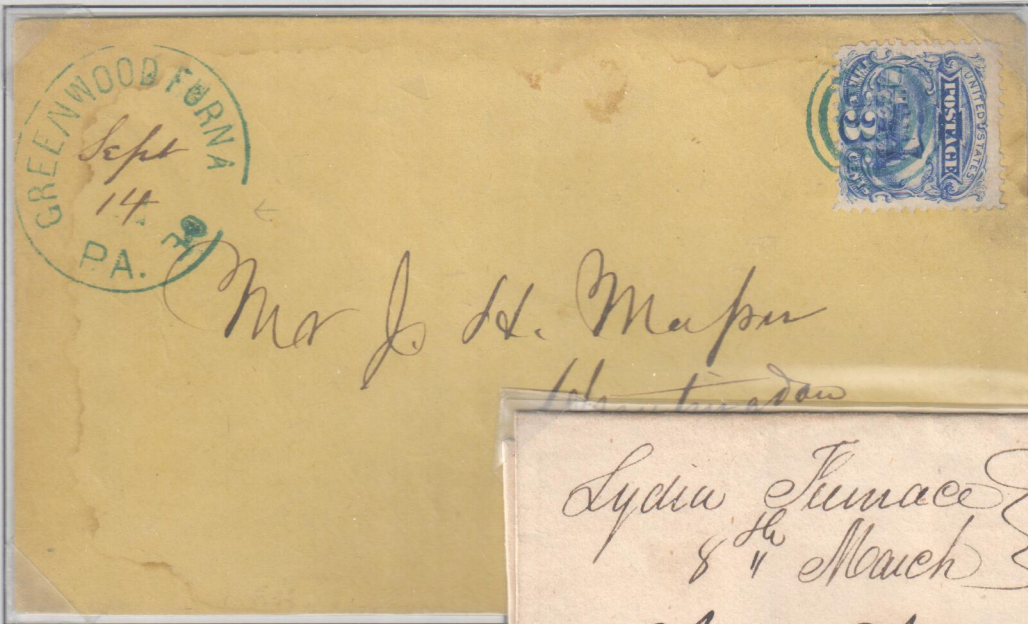 GREENWOOD FURNA
Sept
14
PA.
UNITED STATES
POSTAGE
3
THREE CENTS
Mr J. H.
Huntingdon
Lydia Furnace
8th March